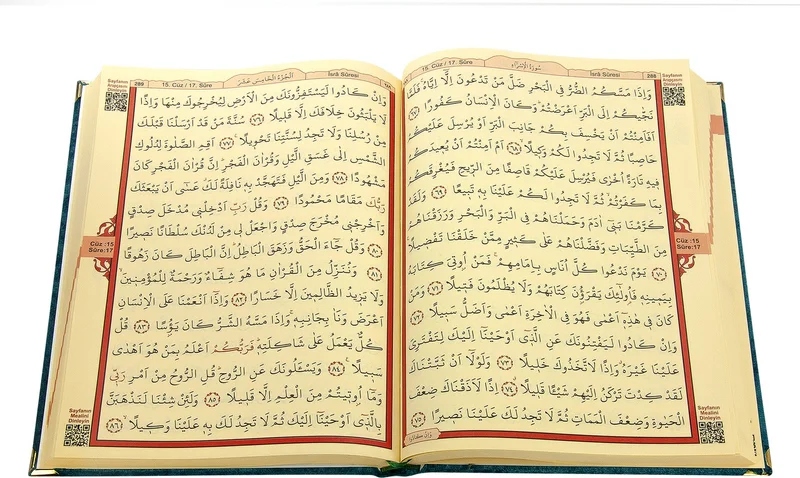 سورة الإسراء
İsrâ Sûresi
15. Cüz / 17. Sûre
288
Sayfanın
Arapçasını
Dinleyin
وَاِذَا مَسَّكُمُ الضُّرُّ فِي الْبَحْرِ ضَلَّ مَنْ تَدْعُونَ اِلَّٓا اِيَّاهُۚ فَلَمَّا
نَجّٰيكُمْ اِلَى الْبَرِّ اَعْرَضْتُمْۜ وَكَانَ الْاِنْسَانُ كَفُورًا ﴿٦٧﴾
اَفَاَمِنْتُمْ اَنْ يَخْسِفَ بِكُمْ جَانِبَ الْبَرِّ اَوْ يُرْسِلَ عَلَيْكُمْ
حَاصِبًا ثُمَّ لَا تَجِدُوا لَكُمْ وَكِيلًاۙ ﴿٦٨﴾ اَمْ اَمِنْتُمْ اَنْ يُعِيدَكُمْ
فِيهِ تَارَةً اُخْرٰى فَيُرْسِلَ عَلَيْكُمْ قَاصِفًا مِنَ الرِّيحِ فَيُغْرِقَكُمْ
بِمَا كَفَرْتُمْۙ ثُمَّ لَا تَجِدُوا لَكُمْ عَلَيْنَا بِهِ تَبِيعًا ﴿٦٩﴾ وَلَقَدْ
كَرَّمْنَا بَنِٓي اٰدَمَ وَحَمَلْنَاهُمْ فِي الْبَرِّ وَالْبَحْرِ وَرَزَقْنَاهُمْ
مِنَ الطَّيِّبَاتِ وَفَضَّلْنَاهُمْ عَلٰى كَثِيرٍ مِمَّنْ خَلَقْنَا تَفْضِيلًا۟
﴿٧٠﴾ يَوْمَ نَدْعُوا كُلَّ اُنَاسٍ بِاِمَامِهِمْۚ فَمَنْ اُو۫تِيَ كِتَابَهُ
بِيَمِينِهِ فَاُو۬لٰٓئِكَ يَقْرَؤُ۫نَ كِتَابَهُمْ وَلَا يُظْلَمُونَ فَتِيلًا ﴿٧١﴾ وَمَنْ
كَانَ فِي هٰذِهِٓ اَعْمٰى فَهُوَ فِي الْاٰخِرَةِ اَعْمٰى وَاَضَلُّ سَبِيلًا ﴿٧٢﴾
وَاِنْ كَادُوا لَيَفْتِنُونَكَ عَنِ الَّذِٓي اَوْحَيْنَٓا اِلَيْكَ لِتَفْتَرِيَ
عَلَيْنَا غَيْرَهُۗ وَاِذًا لَاتَّخَذُوكَ خَلِيلًا ﴿٧٣﴾ وَلَوْلَٓا اَنْ ثَبَّتْنَاكَ
لَقَدْ كِدْتَ تَرْكَنُ اِلَيْهِمْ شَيْـًٔا قَلِيلًاۗ ﴿٧٤﴾ اِذًا لَاَذَقْنَاكَ ضِعْفَ
الْحَيٰوةِ وَضِعْفَ الْمَمَاتِ ثُمَّ لَا تَجِدُ لَكَ عَلَيْنَا نَصِيرًا ﴿٧٥﴾
وَاِنْ كَادُوا
Cüz :15
Sûre:17
Sayfanın
Mealini
Dinleyin
289
15. Cüz / 17. Sûre
الجزء الخامس عشر
İsrâ Sûresi
Sayfanın
Arapçasını
Dinleyin
وَاِنْ كَادُوا لَيَسْتَفِزُّونَكَ مِنَ الْاَرْضِ لِيُخْرِجُوكَ مِنْهَا وَاِذًا
لَا يَلْبَثُونَ خِلَافَكَ اِلَّا قَلِيلًا ﴿٧٦﴾ سُنَّةَ مَنْ قَدْ اَرْسَلْنَا قَبْلَكَ
مِنْ رُسُلِنَا وَلَا تَجِدُ لِسُنَّتِنَا تَحْوِيلًا۟ ﴿٧٧﴾ اَقِمِ الصَّلٰوةَ لِدُلُوكِ
الشَّمْسِ اِلٰى غَسَقِ الَّيْلِ وَقُرْاٰنَ الْفَجْرِۜ اِنَّ قُرْاٰنَ الْفَجْرِ كَانَ
مَشْهُودًا ﴿٧٨﴾ وَمِنَ الَّيْلِ فَتَهَجَّدْ بِهِ نَافِلَةً لَكَۗ عَسٰٓى اَنْ يَبْعَثَكَ
رَبُّكَ مَقَامًا مَحْمُودًا ﴿٧٩﴾ وَقُلْ رَبِّ اَدْخِلْنِي مُدْخَلَ صِدْقٍ
وَاَخْرِجْنِي مُخْرَجَ صِدْقٍ وَاجْعَلْ لِي مِنْ لَدُنْكَ سُلْطَانًا نَصِيرًا
﴿٨٠﴾ وَقُلْ جَٓاءَ الْحَقُّ وَزَهَقَ الْبَاطِلُۜ اِنَّ الْبَاطِلَ كَانَ زَهُوقًا
﴿٨١﴾ وَنُنَزِّلُ مِنَ الْقُرْاٰنِ مَا هُوَ شِفَٓاءٌ وَرَحْمَةٌ لِلْمُؤْمِنِينَۙ
وَلَا يَزِيدُ الظَّالِمِينَ اِلَّا خَسَارًا ﴿٨٢﴾ وَاِذَٓا اَنْعَمْنَا عَلَى الْاِنْسَانِ
اَعْرَضَ وَنَاٰ بِجَانِبِهِۚ وَاِذَا مَسَّهُ الشَّرُّ كَانَ يَؤُ۫سًا ﴿٨٣﴾ قُلْ
كُلٌّ يَعْمَلُ عَلٰى شَاكِلَتِهِۜ فَرَبُّكُمْ اَعْلَمُ بِمَنْ هُوَ اَهْدٰى
سَبِيلًا۟ ﴿٨٤﴾ وَيَسْـَٔلُونَكَ عَنِ الرُّوحِۜ قُلِ الرُّوحُ مِنْ اَمْرِ رَبِّي
وَمَٓا اُو۫تِيتُمْ مِنَ الْعِلْمِ اِلَّا قَلِيلًا ﴿٨٥﴾ وَلَئِنْ شِئْنَا لَنَذْهَبَنَّ
بِالَّذِٓي اَوْحَيْنَٓا اِلَيْكَ ثُمَّ لَا تَجِدُ لَكَ بِهِ عَلَيْنَا وَكِيلًاۙ ﴿٨٦﴾
Cüz :15
Sûre:17
Sayfanın
Mealini
Dinleyin